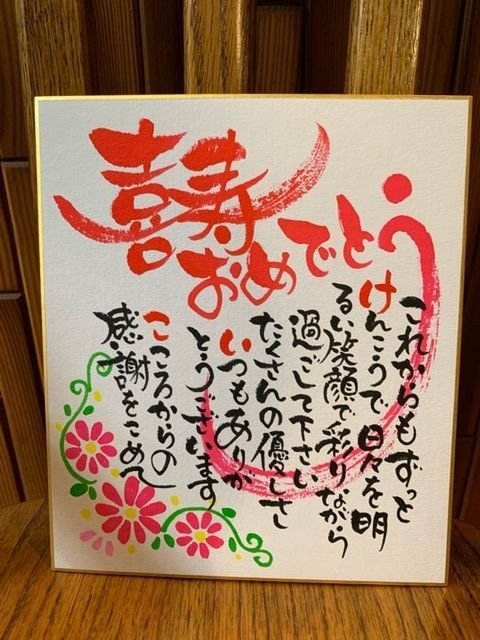 喜寿
おめでとう
これからもずっと
けんこうで日々を明
るい笑顔で彩りながら
過ごして下さい
たくさんの優しさ
いつもありが
とうございます
こころからの
感謝をこめて